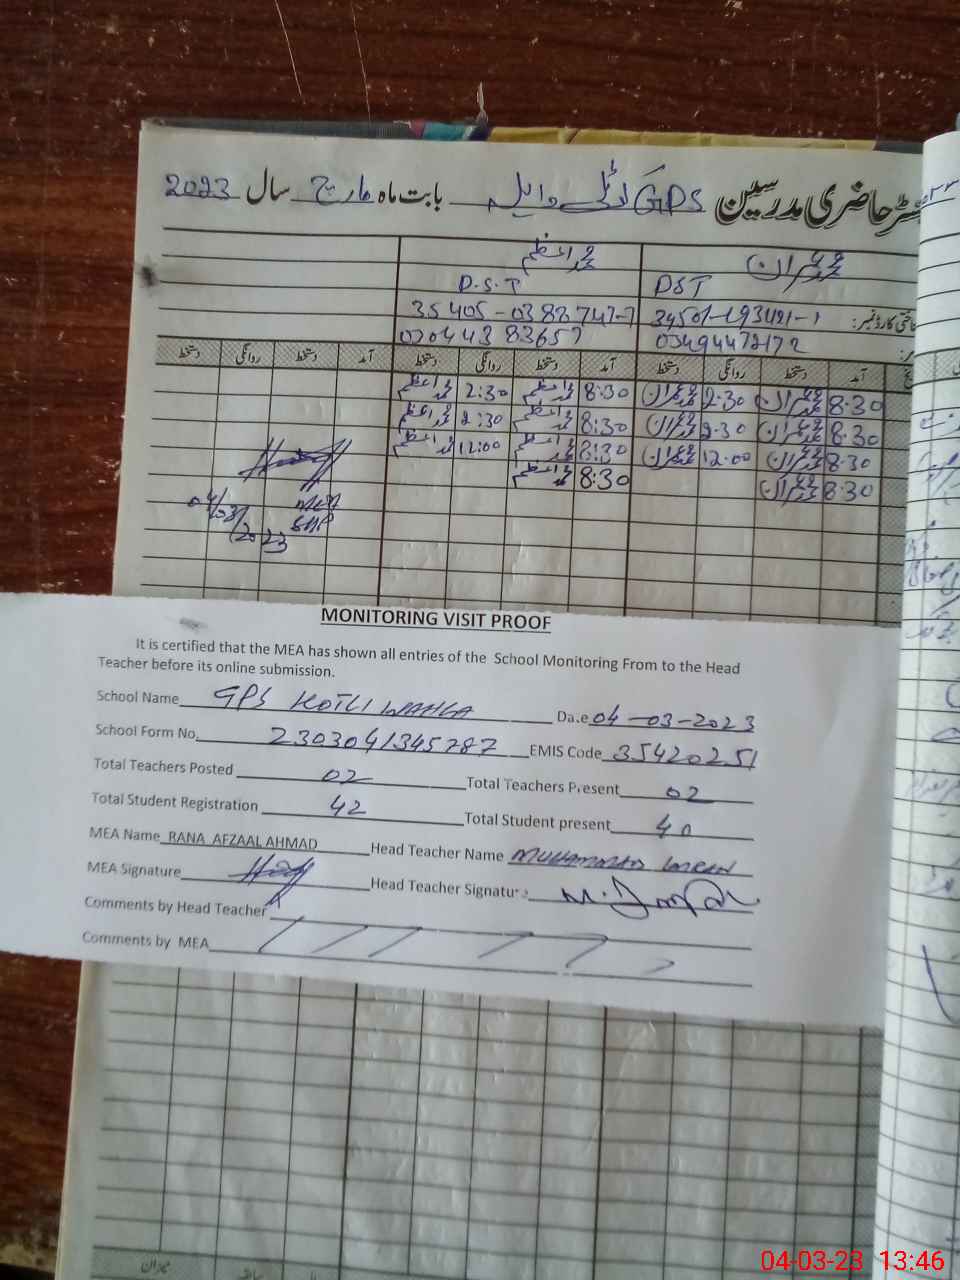 رجسٹر حاضری مدرسین GPS کوٹلی واہلہ بابت ماہ مارچ سال 2023
محمد عمران محمد اعظم
PST P.S.T
34501-1193421-1 35405-0388747-7
03494472172
آمد دستخط روانگی دستخط آمد دستخط روانگی دستخط آمد دستخط روانگی دستخط
8.30 محمد عمران 2.30 محمد عمران 8:30 محمد اعظم 2:30 محمد اعظم
8.30 محمد عمران 2.30 محمد عمران 8:30 محمد اعظم 2:30 محمد اعظم
8.30 محمد عمران 12.00 محمد عمران 8:30 محمد اعظم 12:00 محمد اعظم
8.30 محمد عمران 8:30 محمد اعظم
MEA
04/03/2023
MONITORING VISIT PROOF
It is certified that the MEA has shown all entries of the School Monitoring From to the Head
Teacher before its online submission.
School Name GPS KOTLI WAHLA Date 04-03-2023
School Form No. 2303041345787 EMIS Code 35420251
Total Teachers Posted 02 Total Teachers Present 02
Total Student Registration 42 Total Student present 40
MEA Name RANA AFZAAL AHMAD Head Teacher Name MUHAMMAD IMRAN
MEA Signature Head Teacher Signature M. Imran
Comments by Head Teacher
Comments by MEA
میزان
04-03-23 13:46